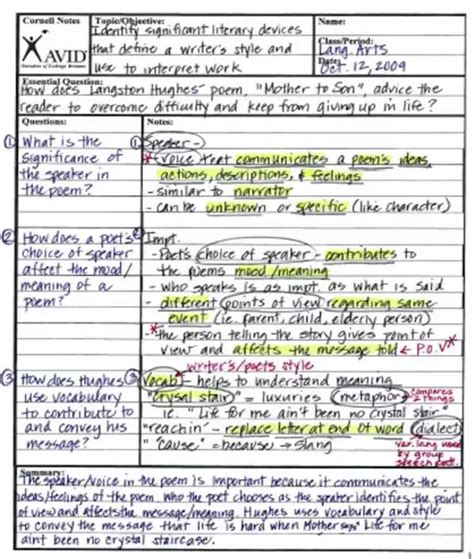 Cornell Notes Topic/Objective: Name:
Identify significant literary devices
that define a writer's style and
use to interpret work
AVID
Class/Period:
Lang. Arts
Date:
Oct. 12, 2009
Essential Question:
How does Langston Hughes' poem, "Mother to Son", advice the
reader to overcome difficulty and keep from giving up in life?
Questions: Notes:
① What is the
significance of
the speaker in
the poem?
① Speaker -
* voice that communicates a poem's ideas,
actions, descriptions, & feelings
- similar to narrator
- can be unknown or specific (like character)
② How does a poet's
choice of speaker
affect the mood/
meaning of a
poem?
② Impt.
- Poet's choice of speaker - contributes to
the poems mood/meaning
- who speaks is as impt. as what is said
- different points of view regarding same
event (ie. parent, child, elderly person)
* the person telling the story gives point of
view and affects the message told ← P.O.V *
writer's/poets style
③ How does Hughes
use vocabulary
to contribute to
and convey his
message?
③ Vocab - helps to understand meaning
"Crysal stair" = luxuries metaphor compares
2 things
ie. "Life for me ain't been no crystal stair."
"reachin" - replace letter at end of word dialect
"'cause" = because → slang
var. lang used
by group
Summary:
The speaker/voice in the poem is important because it communicates the
ideas/feelings of the poem. Who the poet chooses as the speaker identifies the point
of view and affects the message/meaning. Hughes uses vocabulary and style
to convey the message that life is hard when Mother says "Life for me
aint been no crystal staircase.